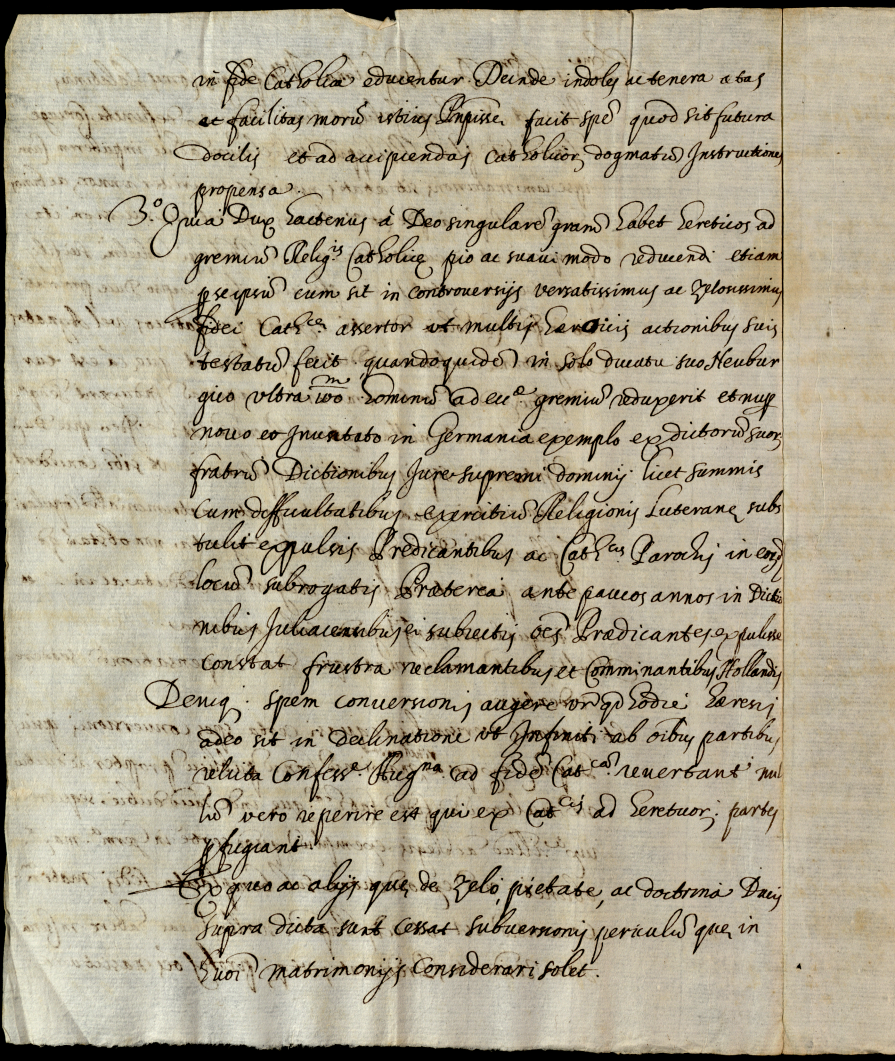 in fide Catholica educentur. Deinde indoles ac tenera ætas
et facilitas morũ istius Prnpissæ facit spẽ quod sit futura
docilis et ad accipiendas Catholicor. dogmatũ Instructiones
propensa.
3.º Quia Dux hactenus à Deo singularẽ gram̃ habet hereticos ad
gremiũ Relig.is Catholicę pio ac suavi modo reducendi etiam
p se ipsũ cum sit in controversijs versatissimus ac Zelosissimus
fidei Cath.ce assertor ut multis heroicis actionibus suis
testatũ fecit quandoquidẽ in solo ducatu suo Neubur
gico ultra hominũ ad ecc.e gremiũ reduxerit et nup
novo eo Inusitato in Germania exemplo ex dictorũ suor.
fratrũ Dictionibus Jure supremi dominij licet summis
cum difficultatibus exercitiũ Religionis Luteranę subs
tulit expulsis Predicantibus ac Cath.cis Parochis in eord
locũ subrogatis Præterea ante paucos annos in Dictio
nibus Juliacensibus ei subiectis oẽs Prædicantes expulisse
constat frustra reclamantibus et Comminantibus Hollandis
Deniq. spem conversionis augere vr̃ qd hodie hæresis
adeo sit in declinatione ut Infiniti ab oĩbus partibus
relicta Confess.e ad fidẽ Cat.cam revertant nul
lus vero reperire est qui ex Cat.cis ad hereticor. partes
pfugiant
Ex quo ac alijs quę de Zelo, pietate, ac doctrina Ducis
supra dicta sunt cessat subversionis periculũ quę in
huoĩ matrimonijs considerari solet.